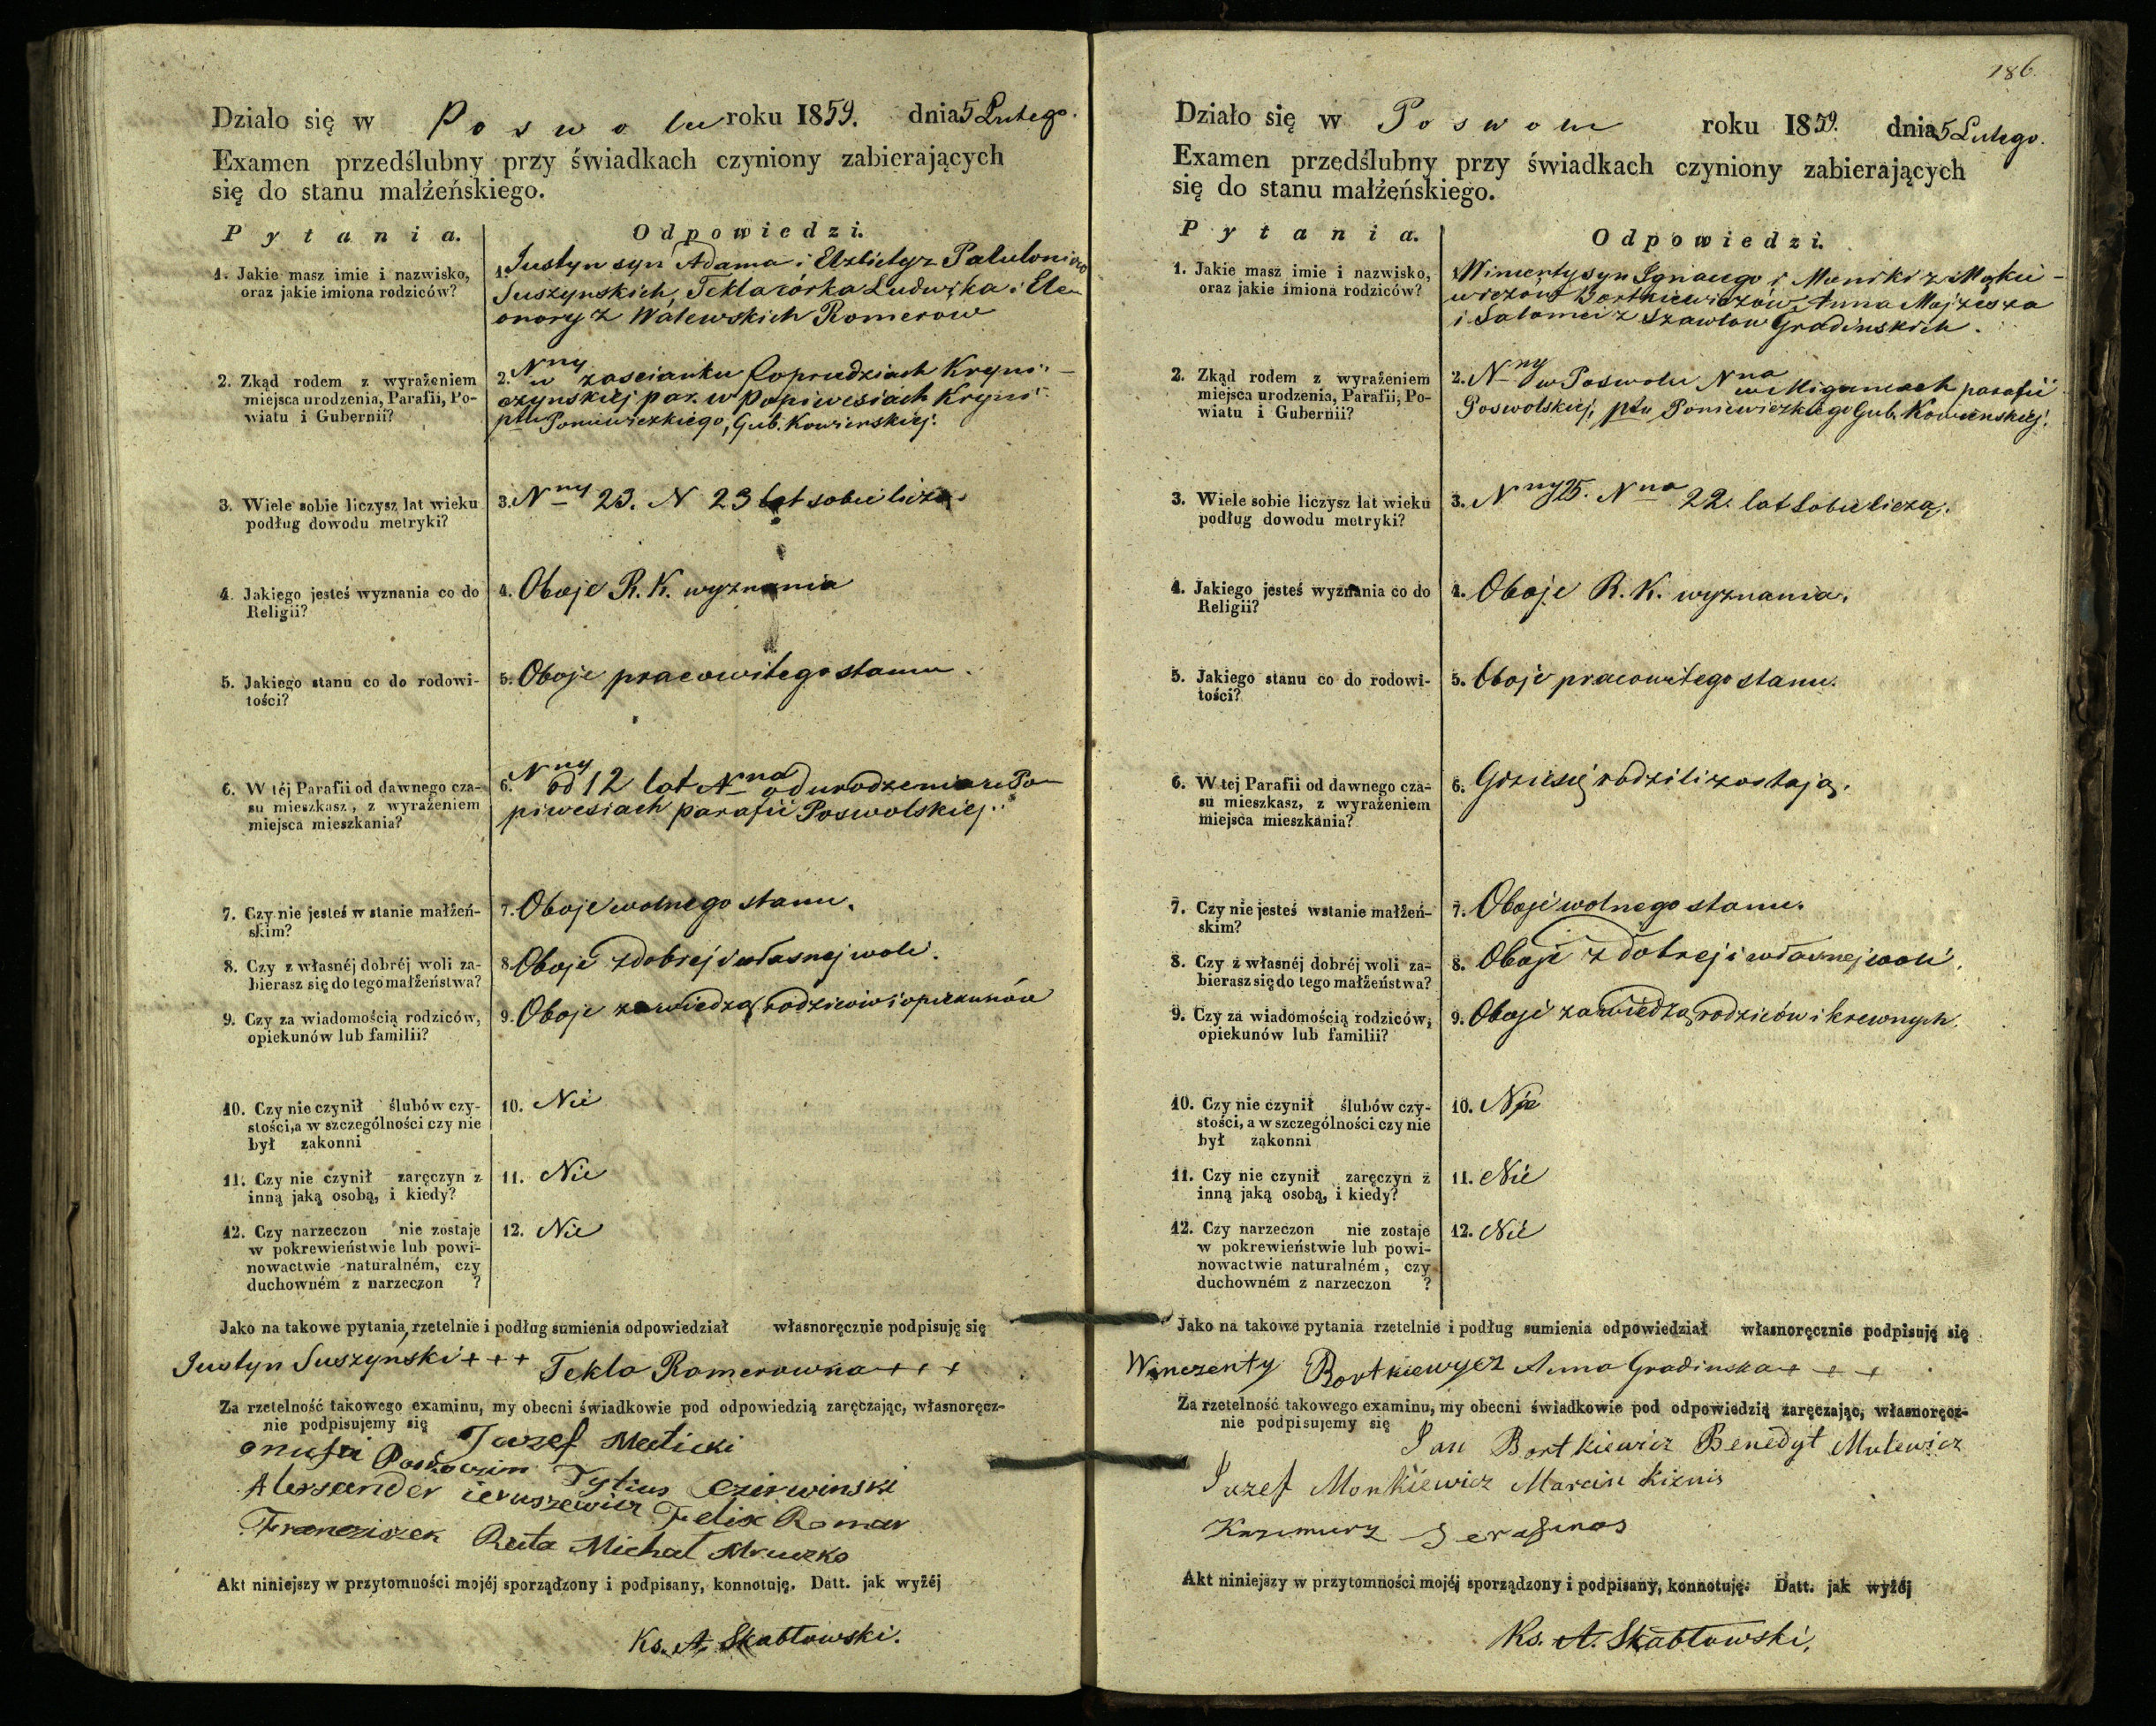 Działo się w Poswolu roku 1859. dnia 5 Lutego.
Examen przedślubny przy świadkach czyniony zabierających
się do stanu małżeńskiego.
Pytania.
Odpowiedzi.
1. Jakie masz imie i nazwisko,
oraz jakie imiona rodziców?
1. Justyn syn Adama i Elzbiety z
Suszynskich, Tekla córka Ludwika i Ele-
onory z Walewskich Romerow
2. Zkąd rodem z wyrażeniem
miejsca urodzenia, Parafii, Po-
wiatu i Gubernii?
2. Nny w zascianku
par. w Popiwesiach
ptu Poniewiezkiego, Gub. Kowienskiej.
3. Wiele sobie liczysz lat wieku
podług dowodu metryki?
3. Nny 23. N 23 lat sobie liczą.
4. Jakiego jesteś wyznania co do
Religii?
4. Oboje R. K. wyznania
5. Jakiego stanu co do rodowi-
tości?
5. Oboje pracowitego stanu.
6. W téj Parafii od dawnego cza-
su mieszkasz, z wyrażeniem
miejsca mieszkania?
6. Nny od 12 lat Nna od urodzenia w Po-
piwesiach parafii Poswolskiej.
7. Czy nie jesteś w stanie małżeń-
skim?
7. Oboje wolnego stanu.
8. Czy z własnéj dobréj woli za-
bierasz się do tego małżeństwa?
8. Oboje z dobrej i własnej woli.
9. Czy za wiadomością rodziców,
opiekunów lub familii?
9. Oboje za wiedzą rodziców i opiekunów
10. Czy nie czynił ślubów czy-
stości, a w szczególności czy nie
był zakonni
10. Nie
11. Czy nie czynił zaręczyn z
inną jaką osobą, i kiedy?
11. Nie
12. Czy narzeczon nie zostaje
w pokrewieństwie lub powi-
nowactwie naturalném, czy
duchowném z narzeczon ?
12. Nie
Jako na takowe pytania, rzetelnie i podług sumienia odpowiedział własnoręcznie podpisuję się
Justyn Suszynski + + + Tekla Romerowna + + +
Za rzetelność takowego examinu, my obecni świadkowie pod odpowiedzią zaręczając, własnoręcz-
nie podpisujemy się
Jozef
Czirwinski
Alexsander Felix Romer
Franciszek Ruta Michał
Akt niniejszy w przytomności mojéj sporządzony i podpisany, konnotuję. Datt. jak wyżéj
Ks. A. Skabłowski.
186.
Działo się w Poswolu roku 1859. dnia 5 Lutego.
Examen przedślubny przy świadkach czyniony zabierających
się do stanu małżeńskiego.
Pytania.
Odpowiedzi.
1. Jakie masz imie i nazwisko,
oraz jakie imiona rodziców?
1. Wincenty syn Ignacego i z Mąkie-
wiczów Bortkiewiczów, Anna Mojżesza
i Salomei z Szawłow Gradinskich.
2. Zkąd rodem z wyrażeniem
miejsca urodzenia, Parafii, Po-
wiatu i Gubernii?
2. Nny w Poswolu Nna w parafii
Poswolskiej, ptu Poniewiezkiego Gub. Kowienskiej.
3. Wiele sobie liczysz lat wieku
podług dowodu metryki?
3. Nny 25. Nna 22. lat sobie liczą.
4. Jakiego jesteś wyznania co do
Religii?
4. Oboje R. K. wyznania.
5. Jakiego stanu co do rodowi-
tości?
5. Oboje pracowitego stanu.
6. W tej Parafii od dawnego cza-
su mieszkasz, z wyrażeniem
miejsca mieszkania?
6. Gdzie się rodzili zostają.
7. Czy nie jesteś w stanie małżeń-
skim?
7. Oboje wolnego stanu.
8. Czy z własnéj dobréj woli za-
bierasz się do tego małżeństwa?
8. Oboje z dobrej i własnej woli.
9. Czy za wiadomością rodziców,
opiekunów lub familii?
9. Oboje za wiedzą rodziców i krewnych.
10. Czy nie czynił ślubów czy-
stości, a w szczególności czy nie
był zakonni
10. Nie
11. Czy nie czynił zaręczyn z
inną jaką osobą, i kiedy?
11. Nie
12. Czy narzeczon nie zostaje
w pokrewieństwie lub powi-
nowactwie naturalném, czy
duchowném z narzeczon ?
12. Nie
Jako na takowe pytania rzetelnie i podług sumienia odpowiedział własnoręcznie podpisuję się
Winczenty Bortkiewycz Anna Gradinska + + +
Za rzetelność takowego examinu, my obecni świadkowie pod odpowiedzią zaręczając, własnoręcz-
nie podpisujemy się
Jan Bortkiewicz Benedyt Mulewicz
Jozef Monkiewicz Marcin
Kazimurz Serafinas
Akt niniejszy w przytomności mojéj sporządzony i podpisany, konnotuję. Datt. jak wyżéj
Ks. A. Skabłowski.